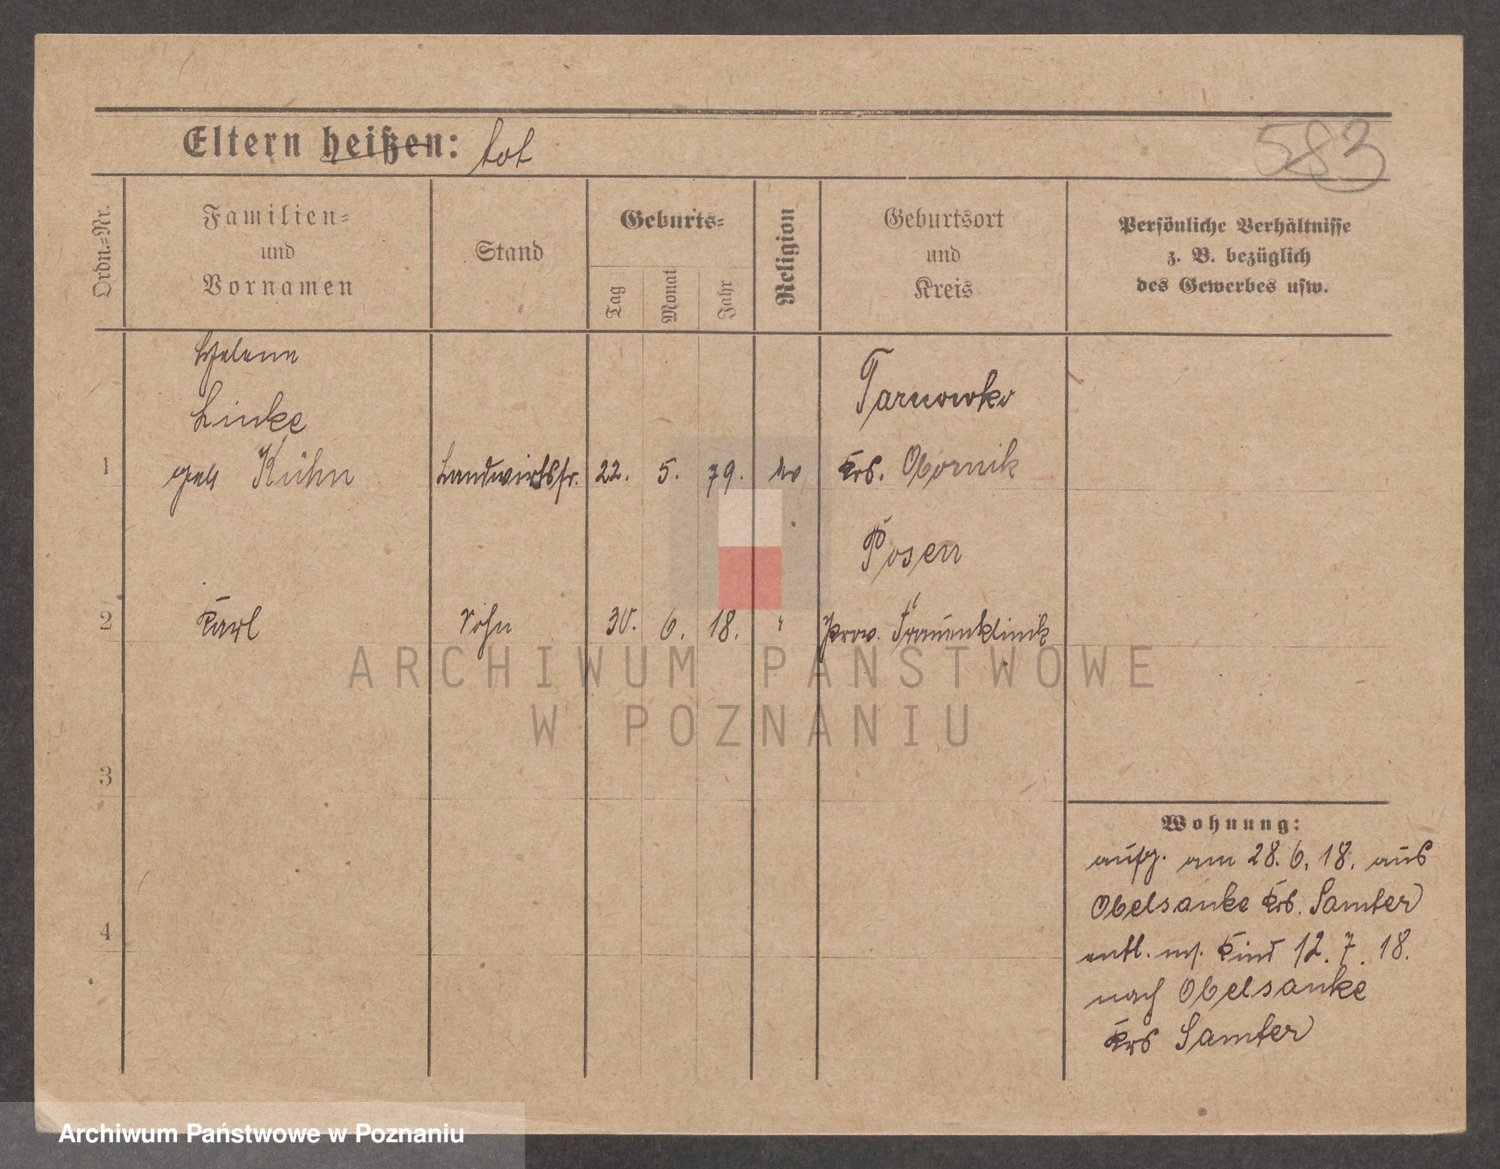 583
Eltern heißen: tot
Ordn.-Nr.
Familien-
und
Vornamen
Stand
Geburts-
Tag
Monat
Jahr
Religion
Geburtsort
und
Kreis
Persönliche Verhältnisse
z. B. bezüglich
des Gewerbes usw.
Helene
Linke
Tarnowko
1 geb Kühn Landwirtsfr. 22. 5. 79. ev Krs. Obornik
Posen
2 Karl Sohn 30. 6. 18. " Prov. Frauenklinik
ARCHIWUM PAŃSTWOWE
W POZNANIU
3
Wohnung:
aufg. am 28. 6. 18. aus
Obelsanke Krs. Samter
4
entl. m. Kind 12. 7. 18.
nach Obelsanke
Krs Samter
Archiwum Państwowe w Poznaniu